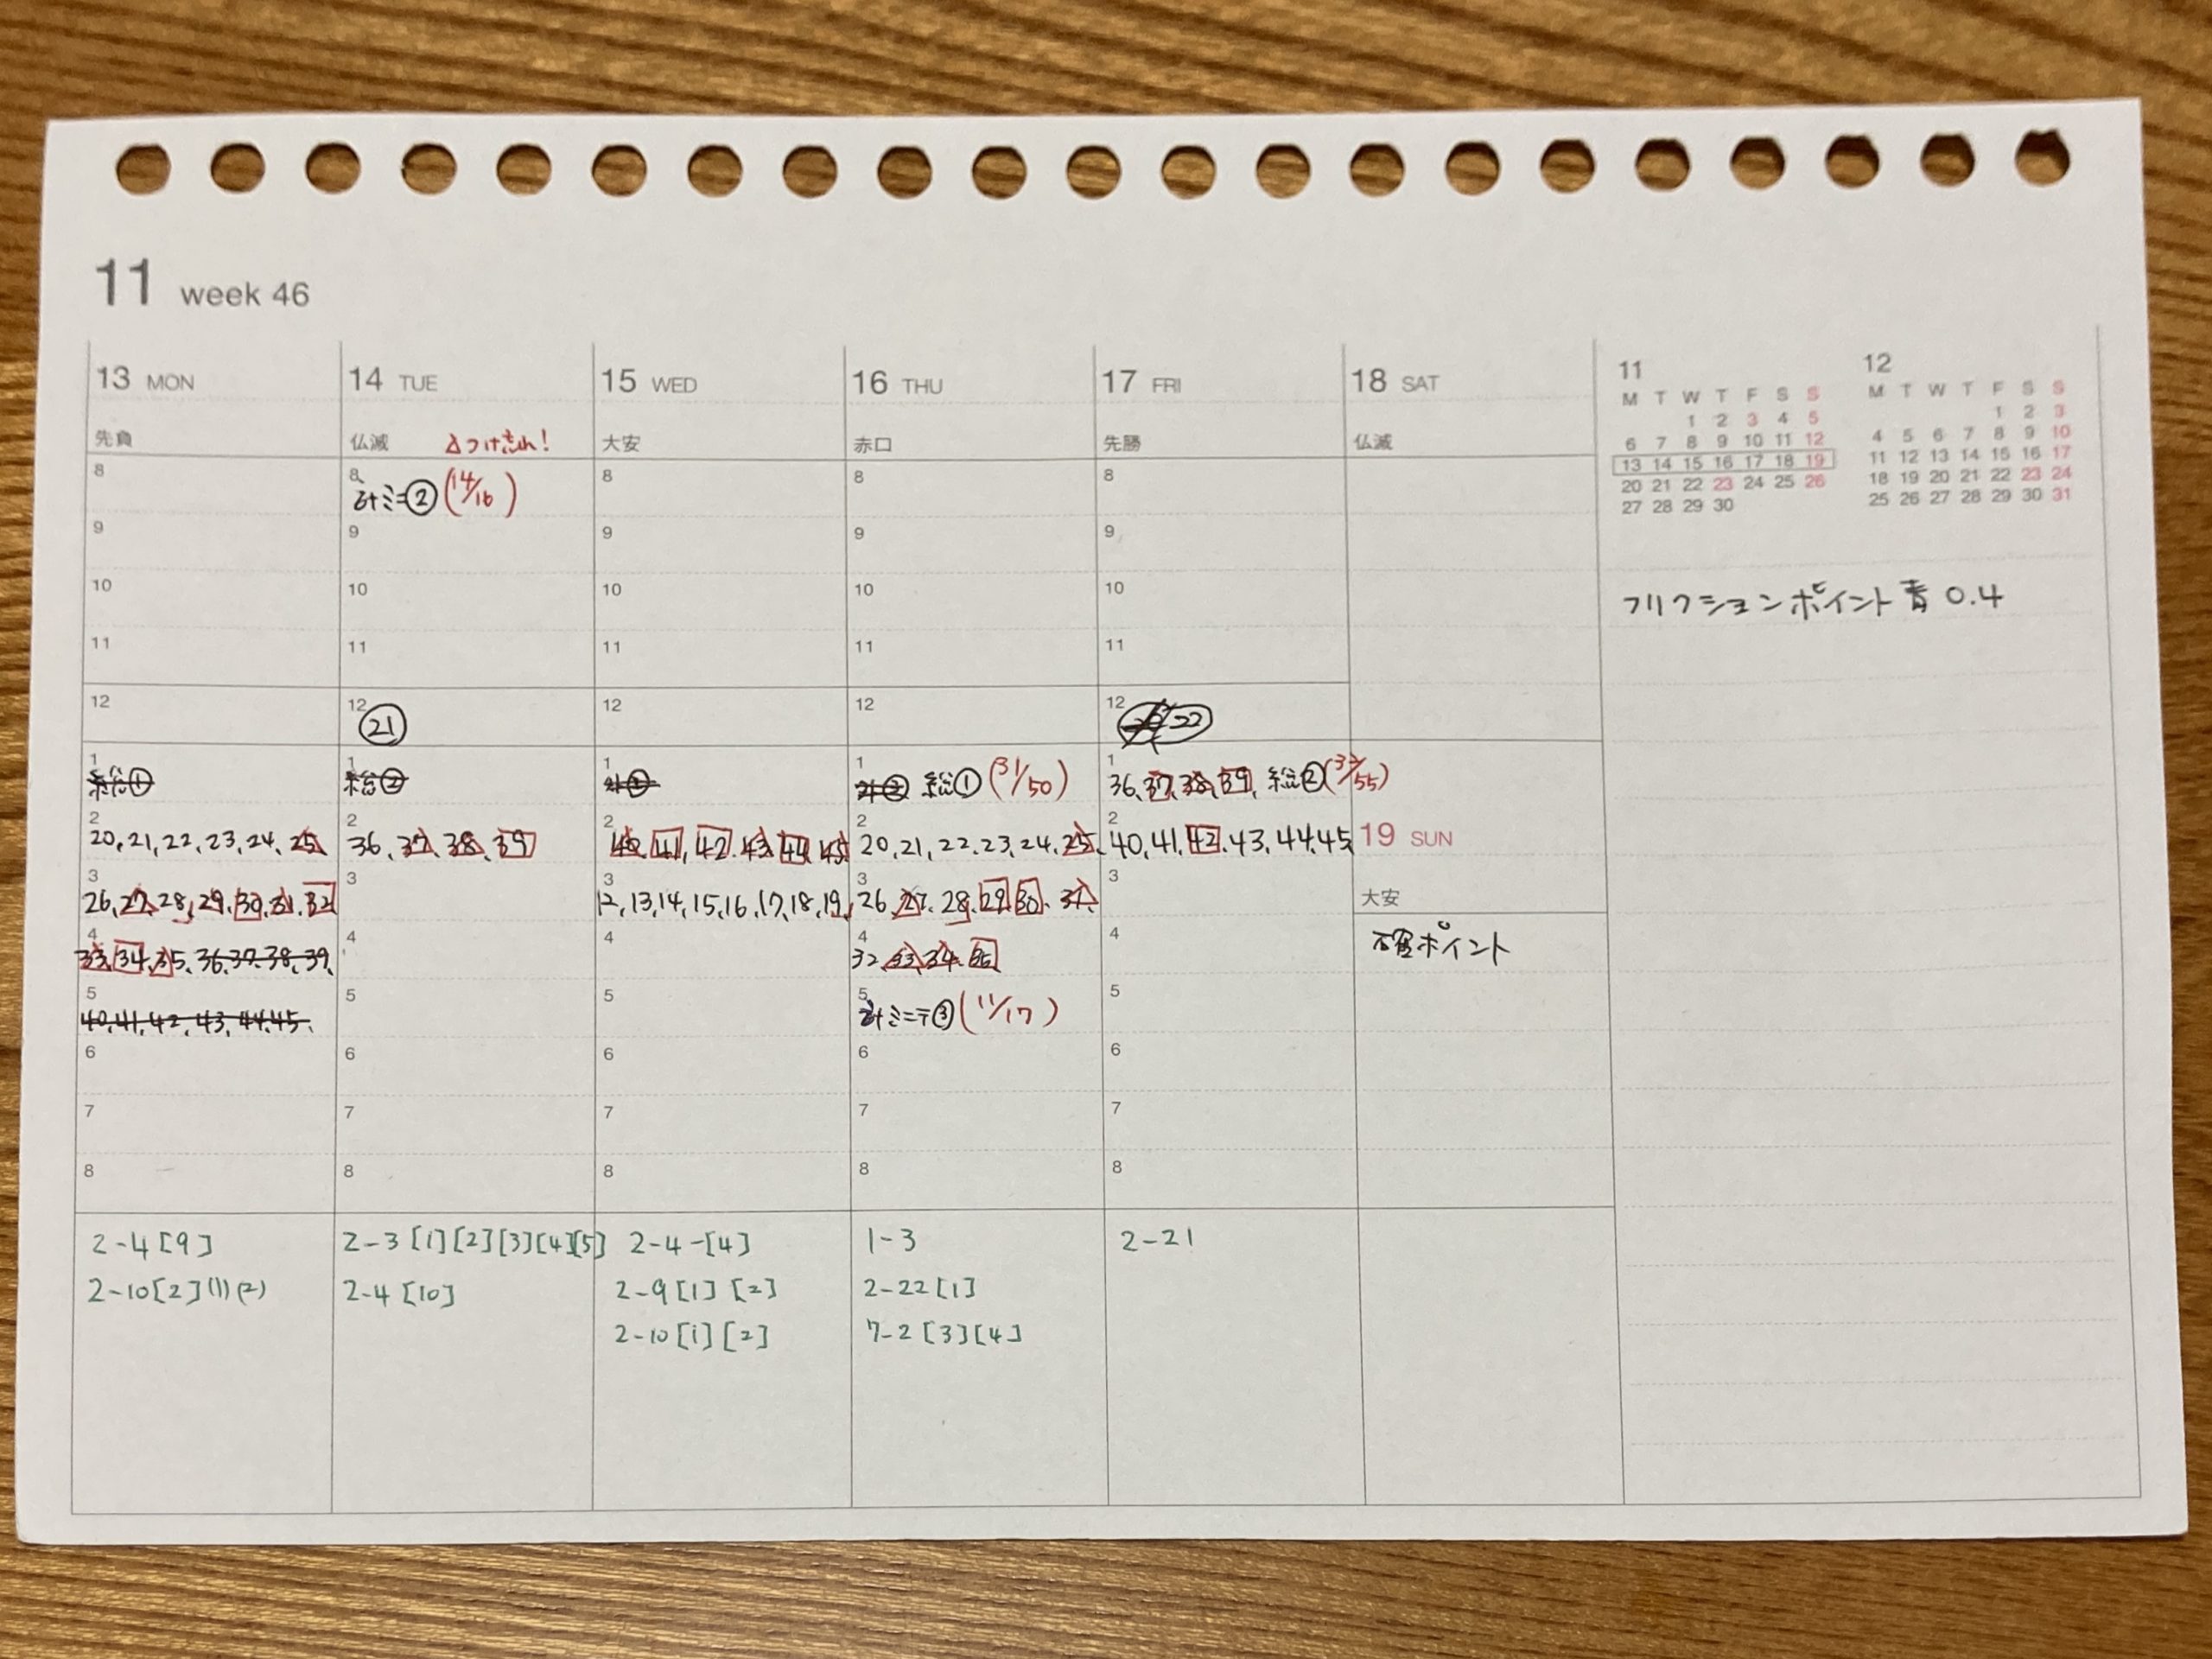 11 week 46
13 MON
先負
8
9
10
11
12
1
総①
2
20, 21, 22, 23, 24, 25
3
26, 27, 28, 29, 30, 31, 32
4
33, 34, 35, 36, 37, 38, 39
5
40, 41, 42, 43, 44, 45
6
7
8
2-4 [9]
2-10 [2] (1) (2)
14 TUE
仏滅 △つけ忘れ!
8
ミニ② (14/16)
9
10
11
12
㉑
1
総②
2
36, 37, 38, 39
3
4
5
6
7
8
2-3 [1] [2] [3] [4] [5]
2-4 [10]
15 WED
大安
8
9
10
11
12
1
2
40, 41, 42, 43, 44, 45
3
12, 13, 14, 15, 16, 17, 18, 19
4
5
6
7
8
2-4-[4]
2-9 [1] [2]
2-10 [1] [2]
16 THU
赤口
8
9
10
11
12
1
総① (31/50)
2
20, 21, 22, 23, 24, 25
3
26, 27, 28, 29, 30, 31
4
32, 33, 34, 35
5
ミニテ③ (11/17)
6
7
8
1-3
2-22 [1]
7-2 [3] [4]
17 FRI
先勝
8
9
10
11
12
22
1
36, 37, 38, 39, 総② (33/55)
2
40, 41, 42, 43, 44, 45
3
4
5
6
7
8
2-21
18 SAT
仏滅
19 SUN
大安
確ポイント
11
M T W T F S S
1 2 3 4 5
6 7 8 9 10 11 12
13 14 15 16 17 18 19
20 21 22 23 24 25 26
27 28 29 30
12
M T W T F S S
1 2 3
4 5 6 7 8 9 10
11 12 13 14 15 16 17
18 19 20 21 22 23 24
25 26 27 28 29 30 31
フリクションポイント青 0.4